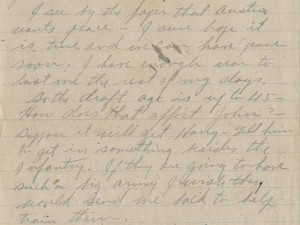 I see by the paper that Austria
wants peace - I sure hope it
is true and we have peace
soon. I have enough war to
last me the rest of my days.
So the draft age is up to 45 -
How does that affect John? -
Suppose it will get Harry - Tell him
to get in something besides the
Infantry. If they are going to have
such a big army I wish they
would send me back to help
train them.